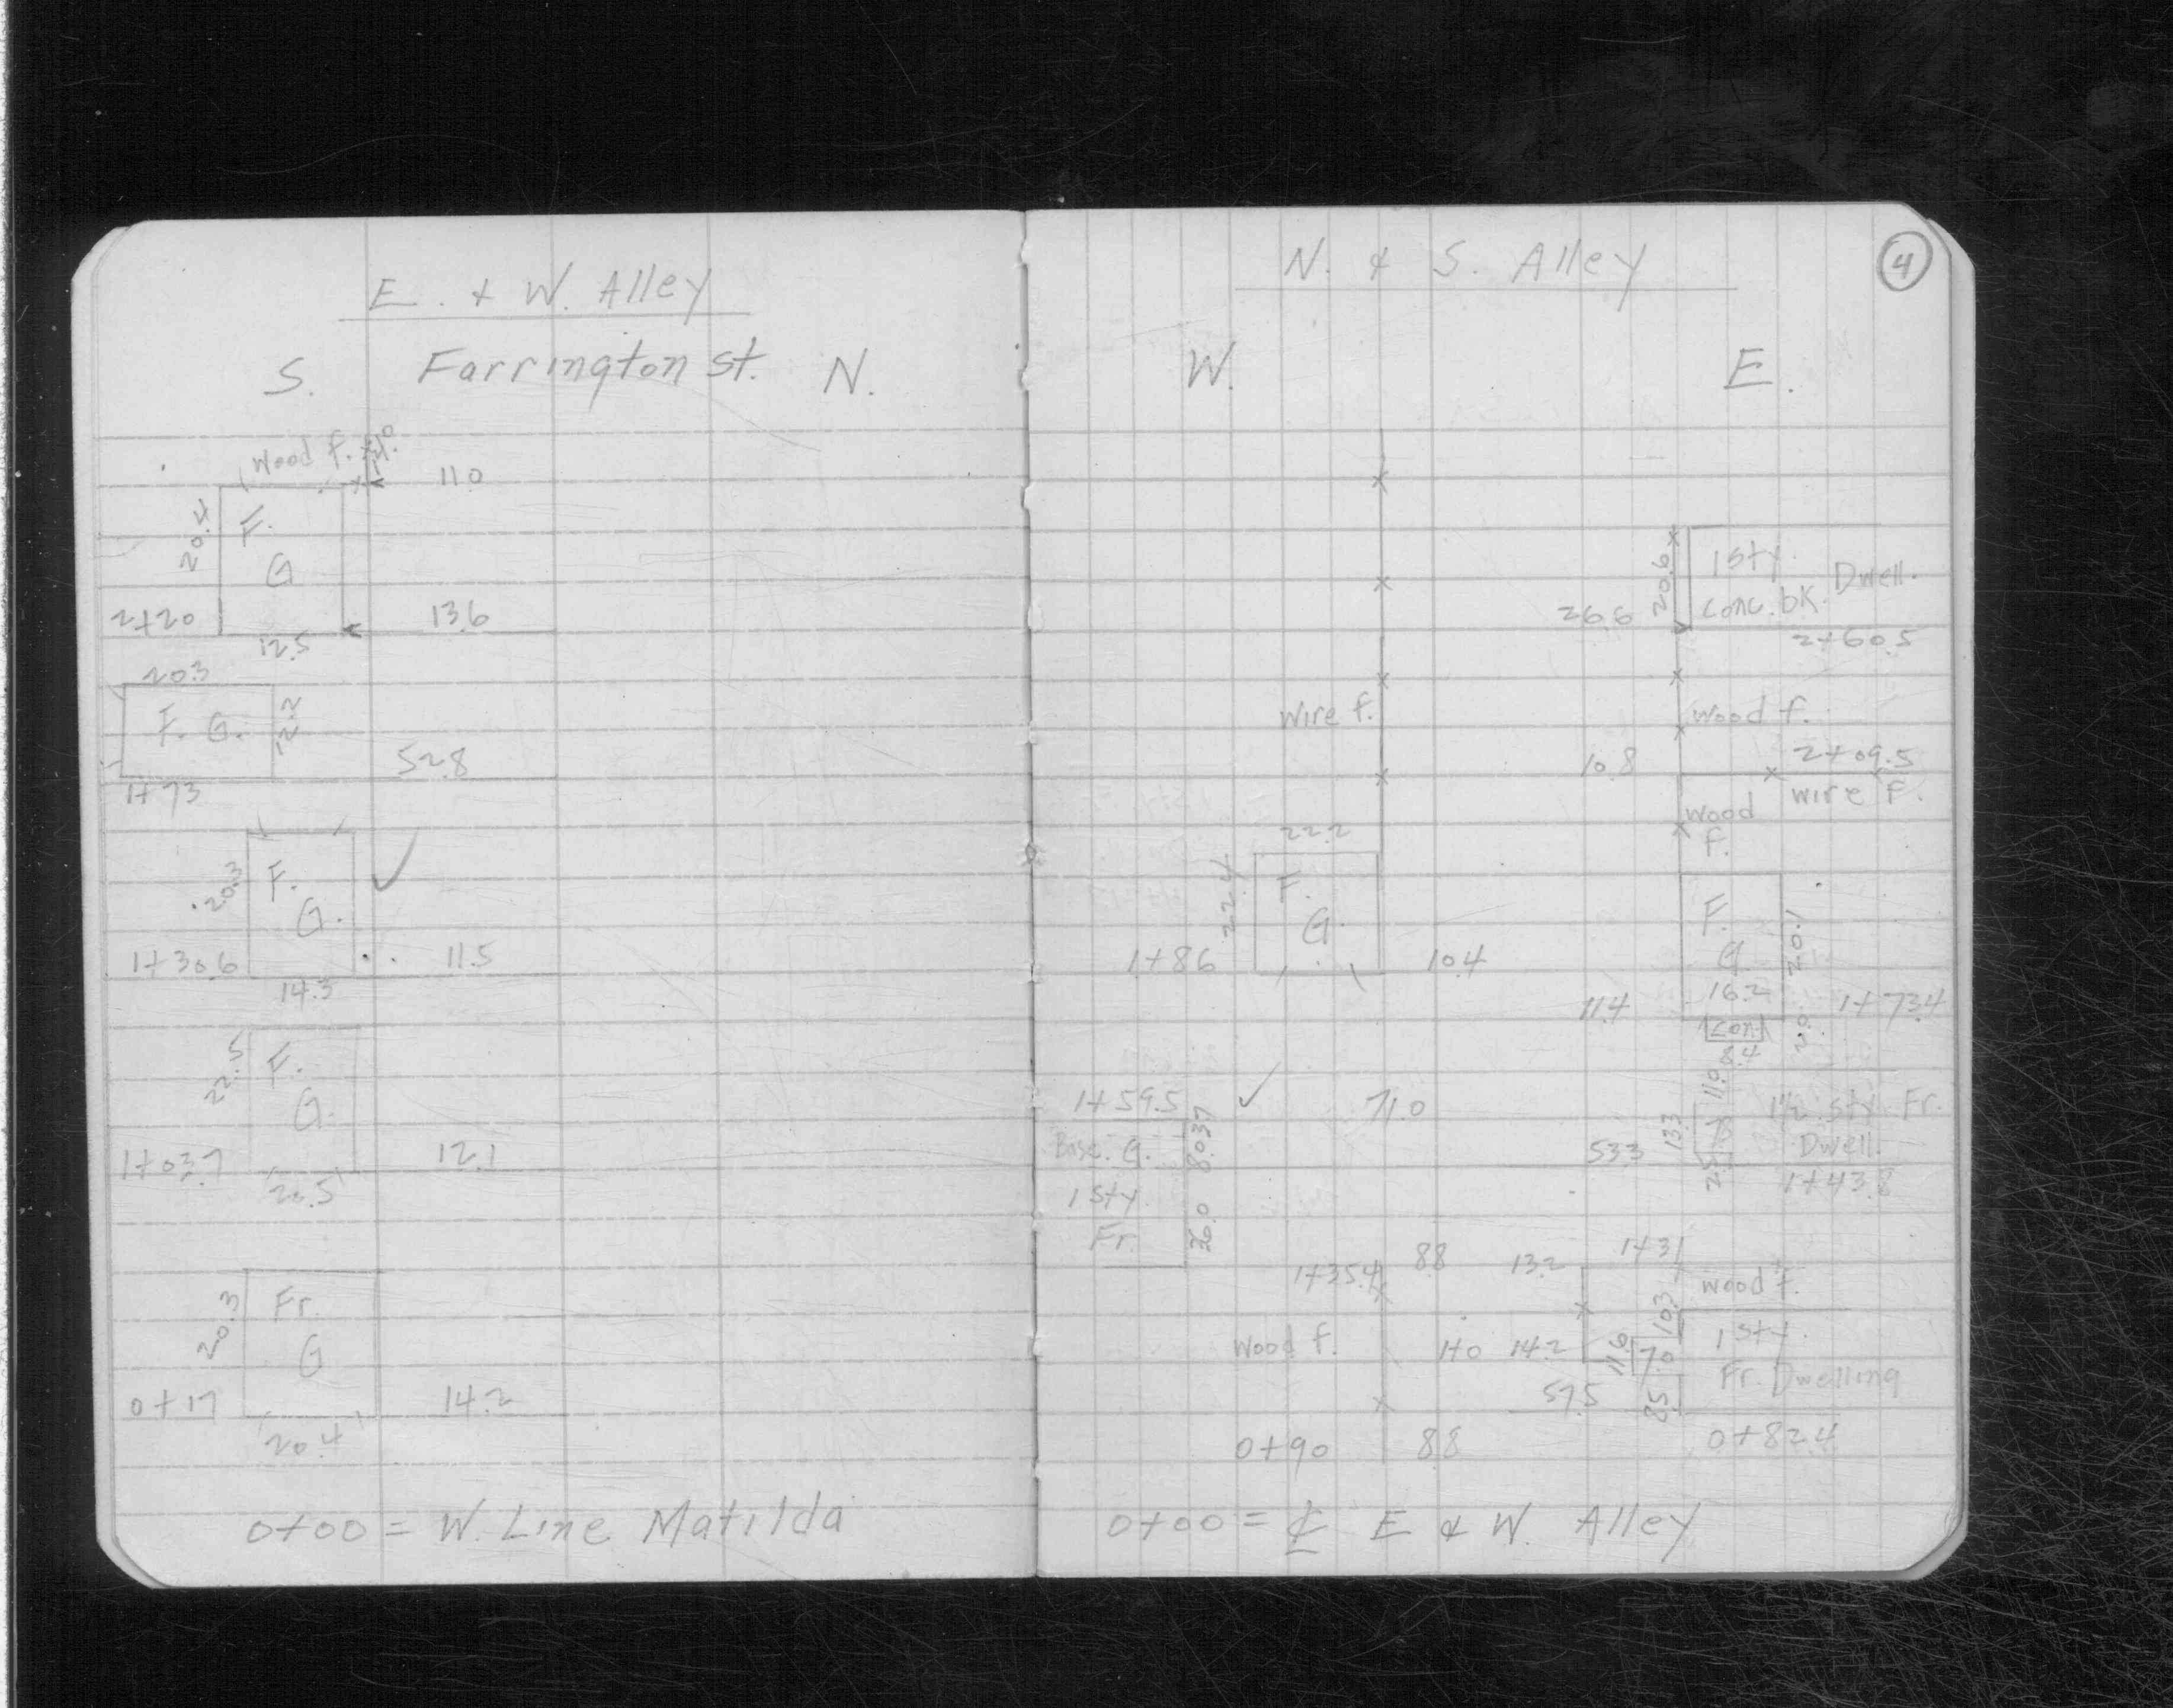 E. & W. Alley
S. Farrington St. N.
Wood f.
11.0
20.4
F.
G
2+20
13.6
12.5
20.3
F. G.
12.2
52.8
1+73
20.3
F.
G.
1+30.6
11.5
14.3
22.5
F.
G.
1+03.7
12.1
20.5
20.3
Fr.
G
0+17
14.2
20.4
0+00 = W. Line Matilda
N. & S. Alley
4
W. E.
20.6
1 sty.
Dwell.
conc. bk.
26.6
2+60.5
Wire f.
Wood f.
10.8
2+09.5
wire f.
Wood
f.
22.2
22.4
F.
G.
1+86
10.4
F.
G
20.1
16.2
11.4
1+73.4
Con
2.0
8.4
11.0
1+59.5
71.0
1½ sty Fr.
Base. G.
13.3
Dwell.
53.3
1+43.8
1 sty
Fr.
26.0
1+35.4
8.8
13.2
1+31
Wood f.
10.3
Wood f.
11.0
14.2
11.6
7.0
1 sty.
Fr. Dwelling
57.5
8.5
0+90
8.8
0+82.4
0+00 = ℄ E & W. Alley